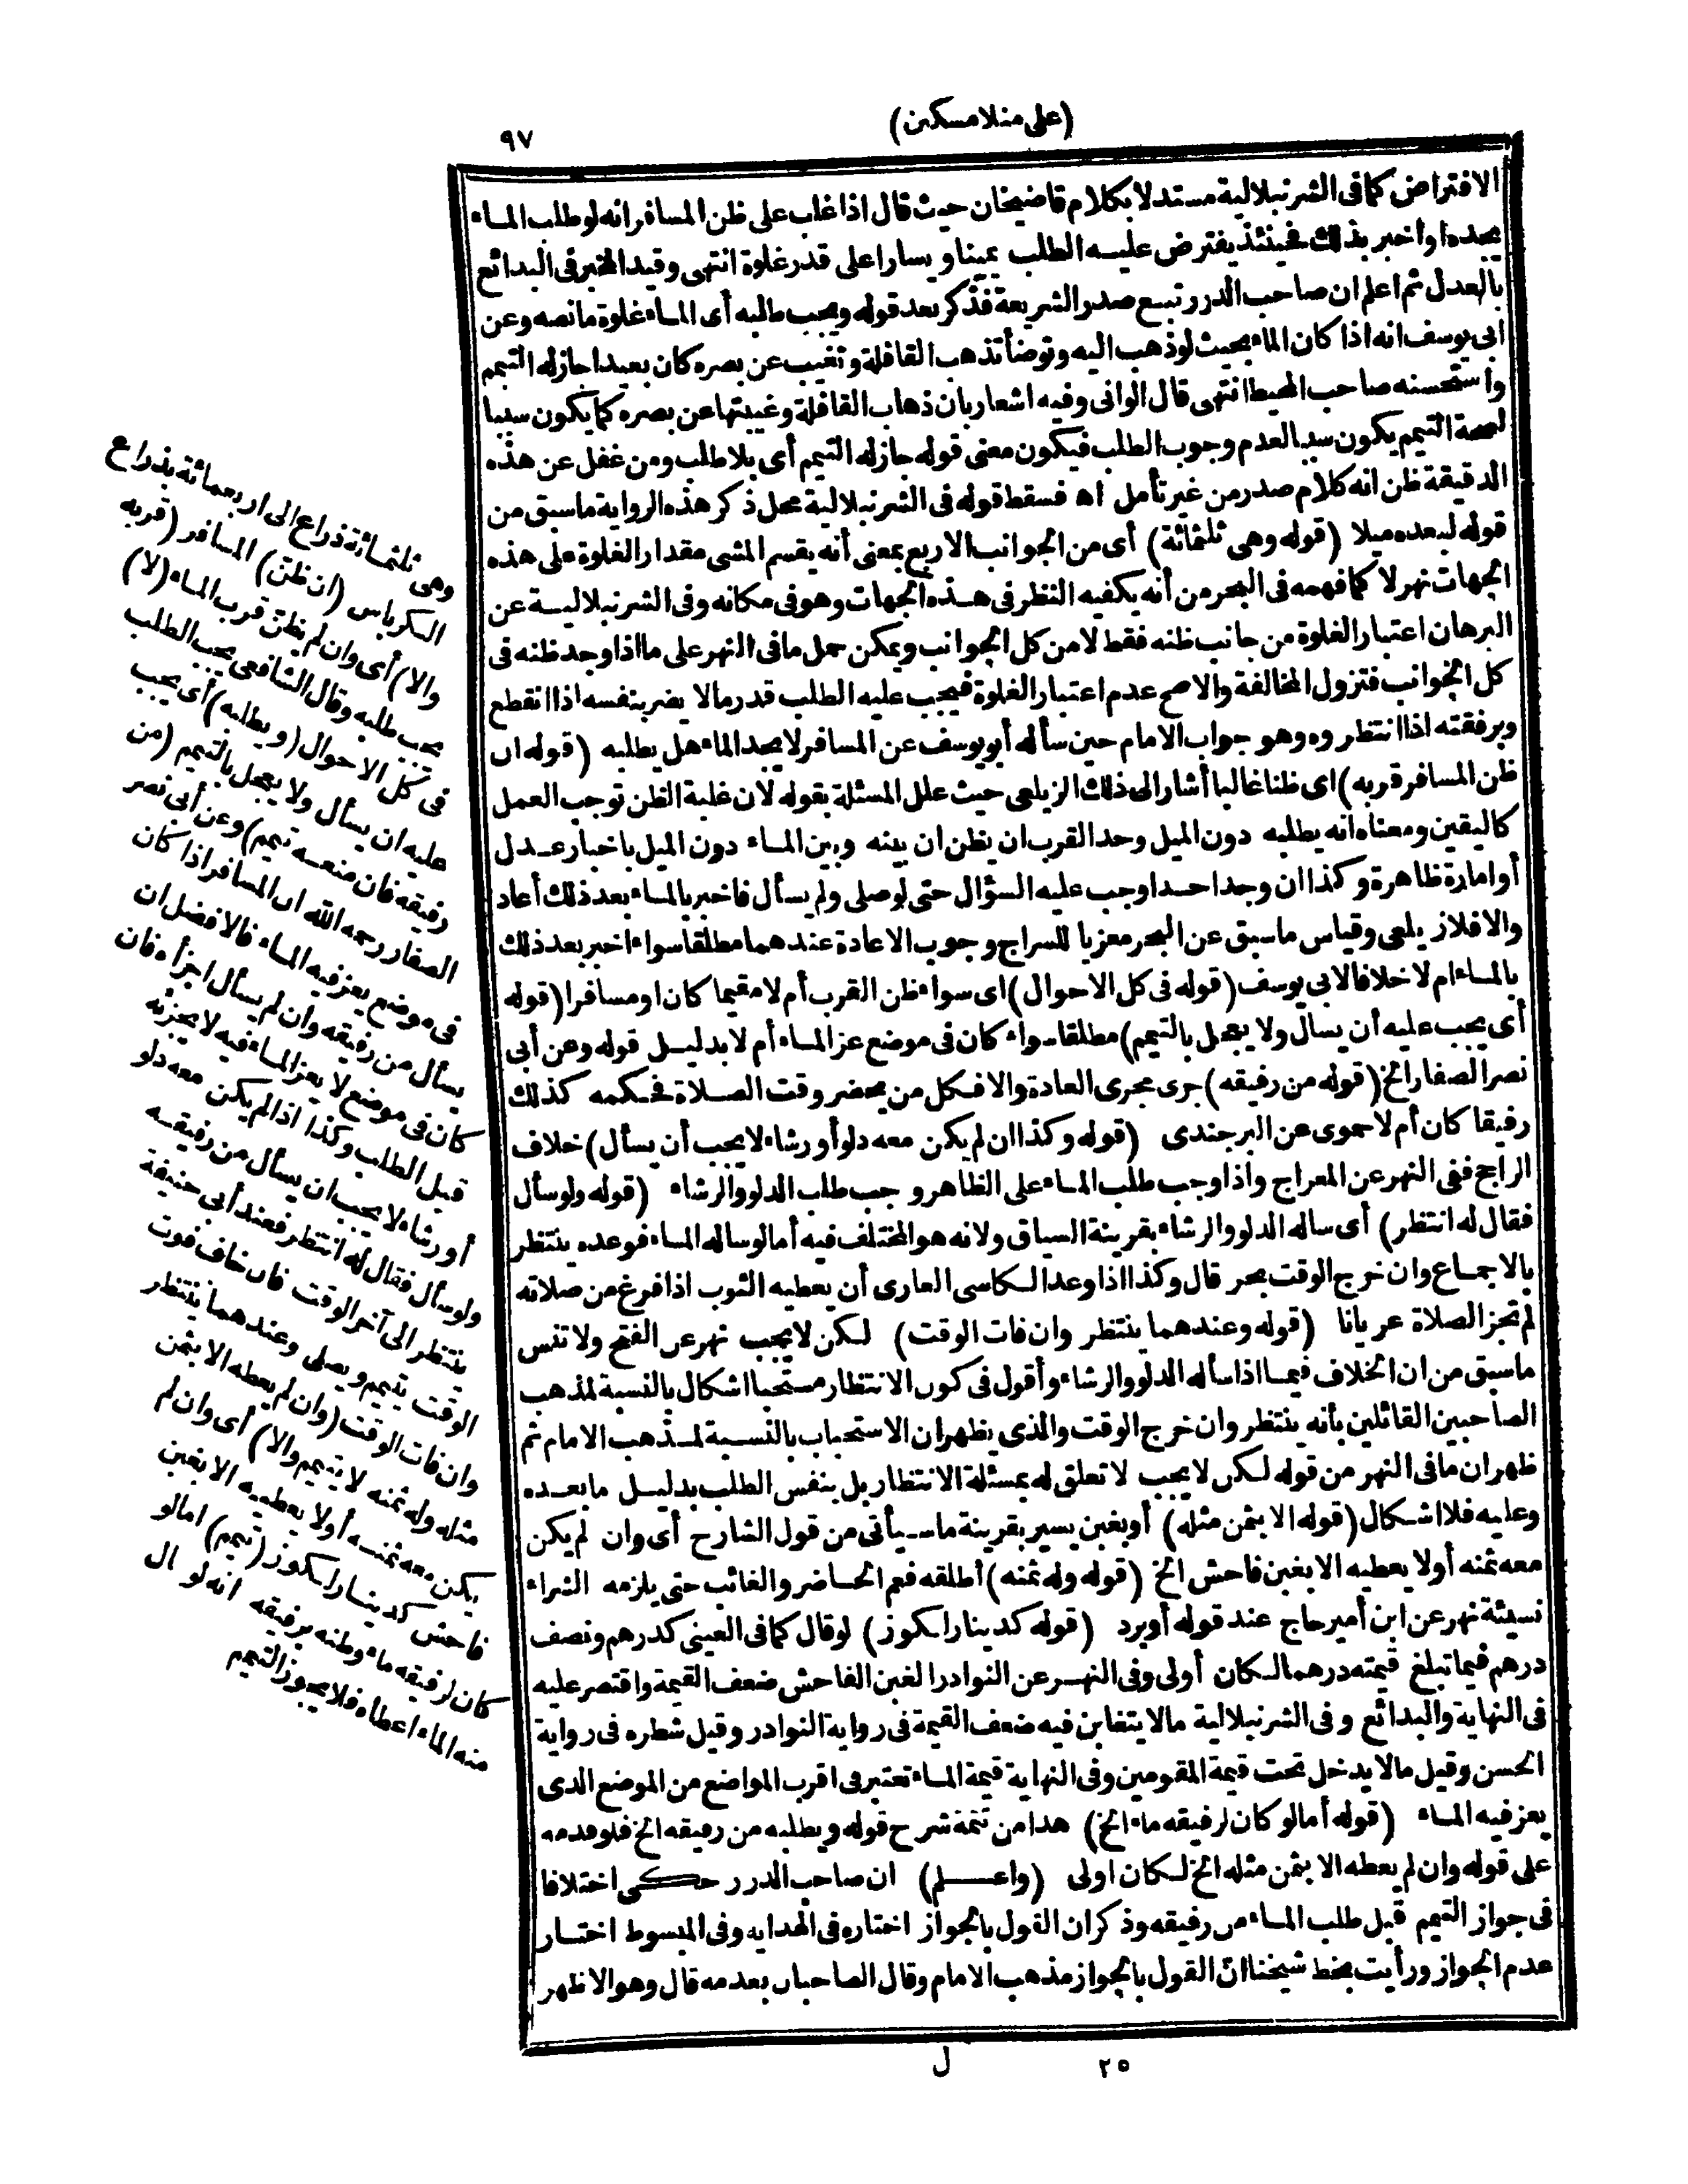 (على منلا مسكين)
٩٧
الافتراض كما فى الشرنبلالية مستدلا بكلام قاضيخان حيث قال اذا غلب على ظن المسافر انه لو طلب الماء
يجده او أخبر بذلك فحينئذ يفترض عليه الطلب يمينا ويسارا على قدر غلوة انتهى وقيد المخبر فى البدائع
بالعدل ثم اعلم ان صاحب الدرر تبع صدر الشريعة فذكر بعد قوله ويجب طلبه أى الماء غلوة ما نصه وعن
ابى يوسف انه اذا كان الماء بحيث لو ذهب اليه وتوضأ تذهب القافلة وتغيب عن بصره كان بعيدا جاز له التيمم
واستحسنه صاحب المحيط انتهى قال الوانى وفيه اشعار بان ذهاب القافلة وغيبتها عن بصره كما يكون سببا
لصحة التيمم يكون سببا لعدم وجوب الطلب فيكون معنى قوله جاز له التيمم أى بلا طلب ومن غفل عن هذه
الدقيقة ظن انه كلام صدر من غير تأمل اه فسقط قوله فى الشرنبلالية محل ذكر هذه الرواية ما سبق من
قوله لبعده ميلا (قوله وهى ثلثمائة) أى من الجوانب الاربع بمعنى أنه يقسم المشى مقدار الغلوة على هذه
الجهات نهر لا كما فهمه فى البحر من أنه يكفيه النظر فى هذه الجهات وهو فى مكانه وفى الشرنبلالية عن
البرهان اعتبار الغلوة من جانب ظنه فقط لا من كل الجوانب ويمكن حمل ما فى النهر على ما اذا وجد ظنه فى
كل الجوانب فتزول المخالفة والاصح عدم اعتبار الغلوة فيجب عليه الطلب قدر ما لا يضر بنفسه اذا انقطع
وبرفقته اذا انتظروه وهو جواب الامام حين سأله أبو يوسف عن المسافر لا يجد الماء هل يطلبه (قوله ان
ظن المسافر قربه) اى ظنا غالبا أشار الى ذلك الزيلعى حيث علل المسئلة بقوله لان غلبة الظن توجب العمل
كاليقين ومعناه انه يطلبه دون الميل وحد القرب ان يظن ان بينه وبين الماء دون الميل باخبار عدل
أو امارة ظاهرة وكذا ان وجد احدا وجب عليه السؤال حتى لو صلى ولم يسأل فاخبر بالماء بعد ذلك أعاد
والا فلا زيلعى وقياس ما سبق عن البحر معزيا للسراج وجوب الاعادة عندهما مطلقا سواء اخبر بعد ذلك
بالماء ام لا خلافا لابى يوسف (قوله فى كل الاحوال) اى سواء ظن القرب أم لا مقيما كان او مسافرا (قوله
أى يجب عليه أن يسأل ولا يعجل بالتيمم) مطلقا سواء كان فى موضع عز الماء أم لا بدليل قوله وعن أبى
نصر الصفار الخ (قوله من رفيقه) جرى مجرى العادة والا فكل من يحضر وقت الصلاة فحكمه كذلك
رفيقا كان أم لا حموى عن البرجندى (قوله وكذا ان لم يكن معه دلو أو رشاء لا يجب أن يسأل) خلاف
الراجح ففى النهر عن المعراج واذا وجب طلب الماء على الظاهر وجب طلب الدلو والرشاء (قوله ولو سأل
فقال له انتظر) أى ساله الدلو والرشاء بقرينة السياق ولانه هو المختلف فيه أما لو ساله الماء فوعده ينتظر
بالاجماع وان خرج الوقت بحر قال وكذا اذا وعد الكاسى العارى أن يعطيه الثوب اذا فرغ من صلاته
لم تجز الصلاة عريانا (قوله وعندهما ينتظر وان فات الوقت) لكن لا يجب نهر عن الفتح ولا تنس
ما سبق من ان الخلاف فيما اذا سأله الدلو والرشاء وأقول فى كون الانتظار مستحبا اشكال بالنسبة لمذهب
الصاحبين القائلين بأنه ينتظر وان خرج الوقت والذى يظهر ان الاستحباب بالنسبة لمذهب الامام ثم
ظهر ان ما فى النهر من قوله لكن لا يجب لا تعلق له بمسئلة الانتظار بل بنفس الطلب بدليل ما بعده
وعليه فلا اشكال (قوله الا بثمن مثله) أو بغبن يسير بقرينة ما سيأتى من قول الشارح أى وان لم يكن
معه ثمنه أو لا يعطيه الا بغبن فاحش الخ (قوله وله ثمنه) أطلقه فعم الحاضر والغائب حتى يلزمه الشراء
نسيئة نهر عن ابن أمير حاج عند قوله أو برد (قوله كدينار لكوز) لو قال كما فى العينى كدرهم ونصف
درهم فيما تبلغ قيمته درهما لكان أولى وفى النهر عن النوادر الغبن الفاحش ضعف القيمة واقتصر عليه
فى النهاية والبدائع وفى الشرنبلالية ما لا يتغابن فيه ضعف القيمة فى رواية النوادر وقيل شطره فى رواية
الحسن وقيل ما لا يدخل تحت قيمة المقومين وفى النهاية قيمة الماء تعتبر فى اقرب المواضع من الموضع الذى
يعز فيه الماء (قوله أما لو كان لرفيقه ماء الخ) هذا من تتمة شرح قوله ويطلبه من رفيقه الخ فلو قدمه
على قوله وان لم يعطه الا بثمن مثله الخ لكان اولى (واعلم) ان صاحب الدرر حكى اختلافا
فى جواز التيمم قبل طلب الماء من رفيقه وذكر ان القول بالجواز اختاره فى الهدايه وفى المبسوط اختار
عدم الجواز ورأيت بخط شيخنا انّ القول بالجواز مذهب الامام وقال الصاحبان بعدمه قال وهو الاظهر
وهى ثلثمائة ذراع الى اربعمائة بذراع
الكرباس (ان ظنّ) المسافر (قربه
والا) أى وان لم يظنّ قرب الماء (لا)
يجب طلبه وقال الشافعى يجب الطلب
فى كل الاحوال (ويطلبه) أى يجب
عليه ان يسأل ولا يعجل بالتيمم (من
رفيقه فان منعه تيمم) وعن أبى نصر
الصفار رحمه الله ان المسافر اذا كان
فى موضع يعز فيه الماء فالافضل ان
يسأل من رفيقه وان لم يسأل اجزأه فان
كان فى موضع لا يعز الماء فيه لا يجزئه
قبل الطلب وكذا اذا لم يكن معه دلو
أو رشاء لا يجب ان يسأل من رفيقه
ولو سأل فقال له انتظر فعند أبى حنيفة
ينتظر الى آخر الوقت فان خاف فوت
الوقت يتيمم ويصلى وعندهما ينتظر
وان فات الوقت (وان لم يعطه الا بثمن
مثله وله ثمنه لا يتيمم والا) أى وان لم
يكن معه ثمنه أو لا يعطيه الا بغبن
فاحش كدينار لكوز (تيمم) اما لو
كان لرفيقه ماء وظنه برفيقه انه لو ال
منه الماء اعطاه فلا يجوز التيمم
ل
٢٥